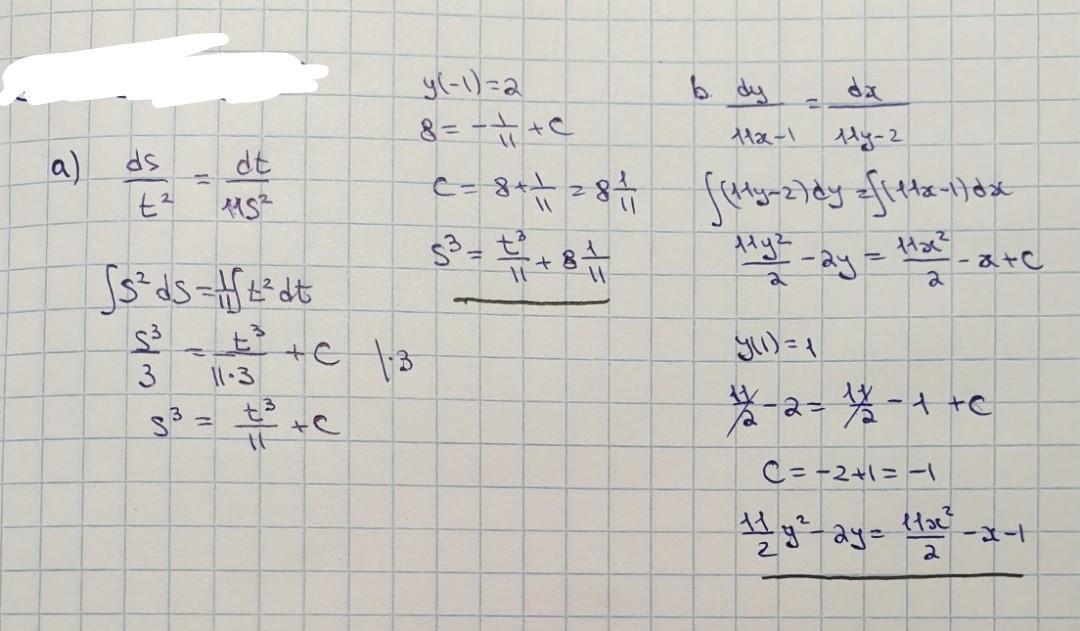 a) ds/t² = dt/11s²
∫s² ds = 1/11 ∫t² dt
s³/3 = t³/(11·3) + C |·3
s³ = t³/11 + C
y(-1)=2
8 = -1/11 + C
C = 8 + 1/11 = 8 1/11
s³ = t³/11 + 8 1/11
b. dy/(11x-1) = dx/(11y-2)
∫(11y-2)dy = ∫(11x-1)dx
11y²/2 - 2y = 11x²/2 - x + C
y(1) = 1
11/2 - 2 = 11/2 - 1 + C
C = -2+1 = -1
11/2 y² - 2y = 11x²/2 - x - 1